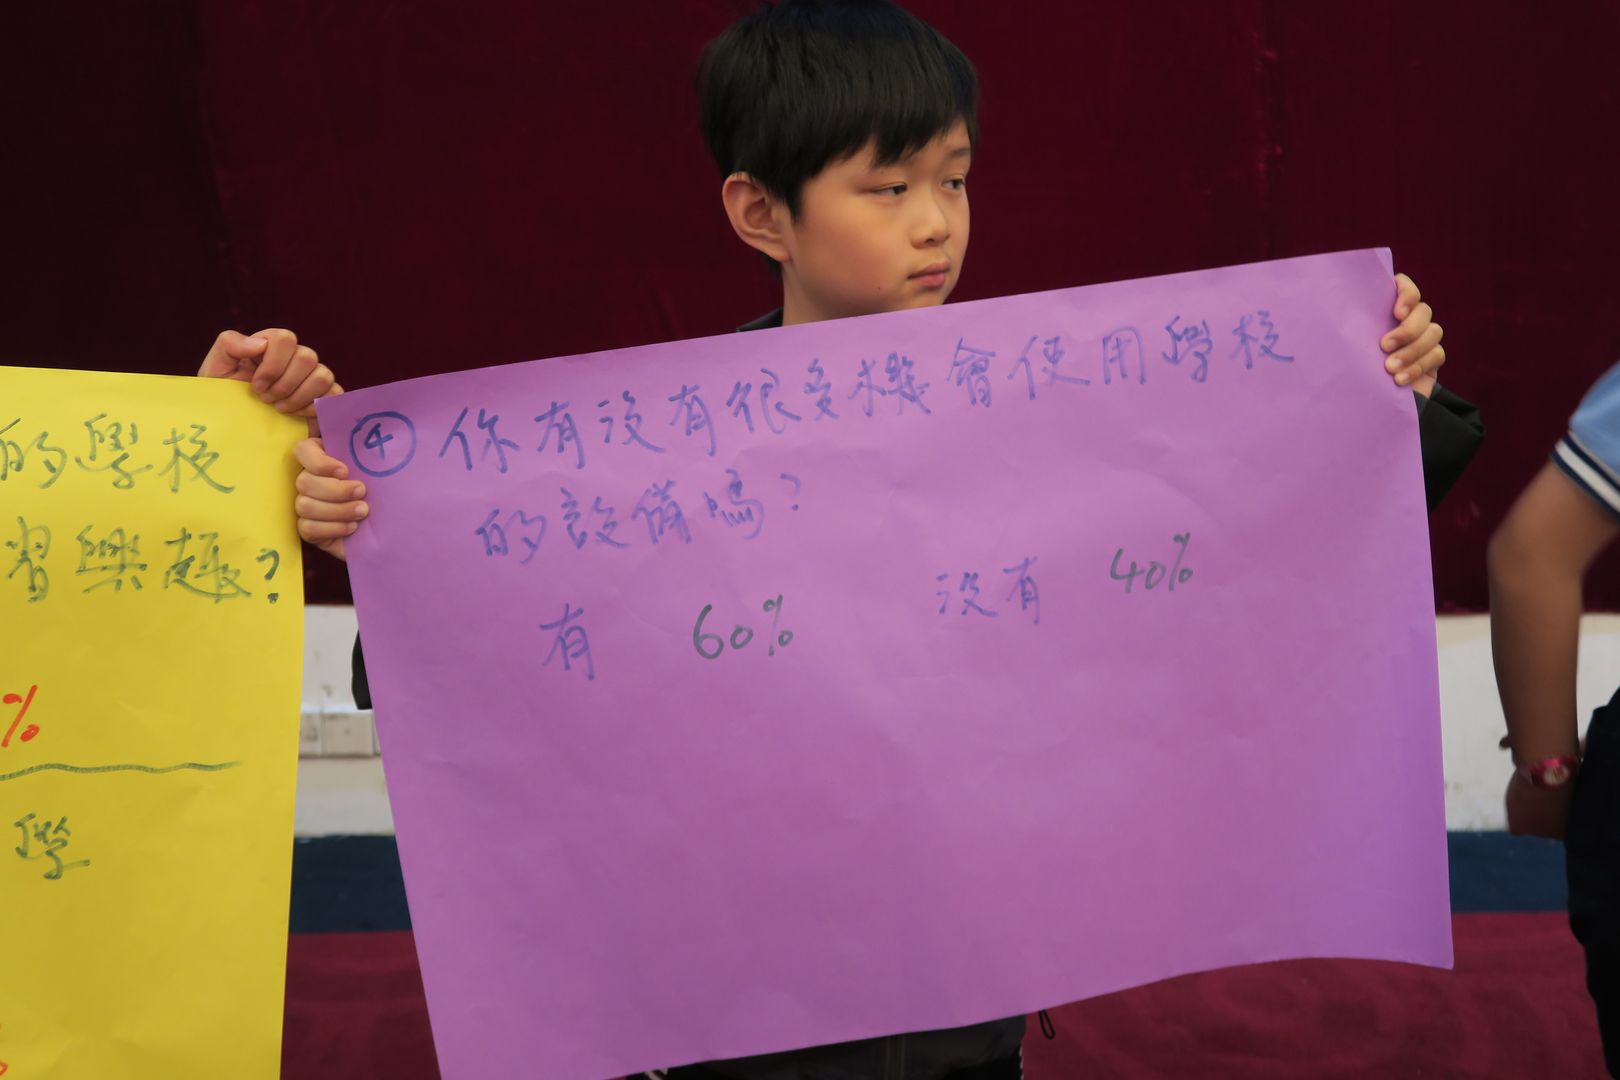 的學校
習興趣?
%
學
④ 你有沒有很多機會使用學校
的設備嗎?
有 60% 沒有 40%